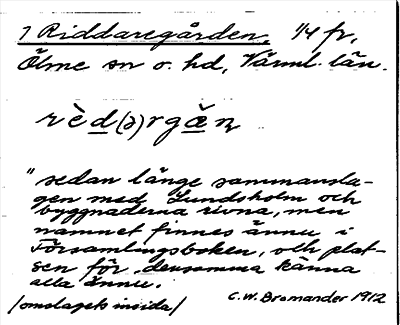 1 Riddaregården. 1/4 fr,
Ölme sn o. hd, Värml. län.
rèd(ə)rgæ̀n
"sedan länge sammansla-
gen med Lundsholm och
byggnaderna rivna, men
namnet finnes ännu i
Församlingsboken, och plat-
sen för densamma känna
alla ännu.
/omslagets insida/ C. W. Bromander 1912